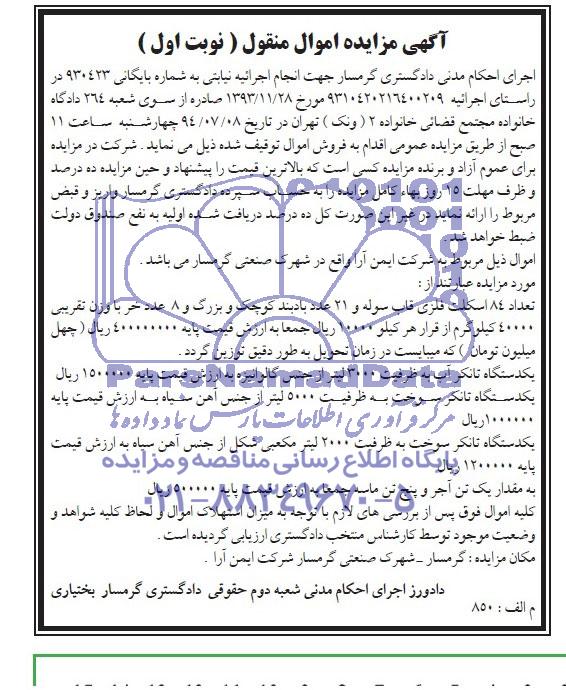 آگهی مزایده اموال منقول ( نوبت اول )
اجرای احکام مدنی دادگستری گرمسار جهت انجام اجرائیه نیابتی به شماره بایگانی ۹۳۰۴۲۳ در
راستای اجرائیه ۹۳۱۰۴۲۰۲۱۶۴۰۰۲۰۹ مورخ ۱۳۹۳/۱۱/۲۸ صادره از سوی شعبه ۲۶۴ دادگاه
خانواده مجتمع قضائی خانواده ۲ ( ونک ) تهران در تاریخ ۹۴/۰۷/۰۸ چهارشنبه ساعت ۱۱
صبح از طریق مزایده عمومی اقدام به فروش اموال توقیف شده ذیل می نماید . شرکت در مزایده
برای عموم آزاد و برنده مزایده کسی است که بالاترین قیمت را پیشنهاد و حین مزایده ده درصد
و ظرف مهلت ۱۵ روز بهاء کامل مزایده را به حساب سپرده دادگستری گرمسار واریز و قبض
مربوط را ارائه نماید در غیر این صورت کل ده درصد دریافت شده اولیه به نفع صندوق دولت
ضبط خواهد شد .
اموال ذیل مربوط به شرکت ایمن آرا واقع در شهرک صنعتی گرمسار می باشد .
مورد مزایده عبارتند از :
تعداد ۸۴ اسکلت فلزی قاب سوله و ۲۱ عدد بادبند کوچک و بزرگ و ۸ عدد خر با وزن تقریبی
۴۰۰۰۰ کیلوگرم از قرار هر کیلو ۱۰۰۰۰ ریال جمعا به ارزش قیمت پایه ۴۰۰۰۰۰۰۰۰ ریال ( چهل
میلیون تومان ) که میبایست در زمان تحویل به طور دقیق توزین گردد .
یکدستگاه تانکر آب به ظرفیت ۳۰۰۰ لیتر از جنس گالوانیزه به ارزش قیمت پایه ۱۵۰۰۰۰۰ ریال
یکدستگاه تانکر سوخت به ظرفیت ۵۰۰۰ لیتر از جنس آهن سیاه به ارزش قیمت پایه
۱۰۰۰۰۰۰ریال
یکدستگاه تانکر سوخت به ظرفیت ۲۰۰۰ لیتر مکعبی شکل از جنس آهن سیاه به ارزش قیمت
پایه ۱۲۰۰۰۰۰ ریال
به مقدار یک تن آجر و پنج تن ماسه جمعا به ارزش قیمت پایه ۵۰۰۰۰۰ ریال
کلیه اموال فوق پس از بررسی های لازم با توجه به میزان استهلاک اموال و لحاظ کلیه شواهد و
وضعیت موجود توسط کارشناس منتخب دادگستری ارزیابی گردیده است .
مکان مزایده : گرمسار _ شهرک صنعتی گرمسار شرکت ایمن آرا .
دادورز اجرای احکام مدنی شعبه دوم حقوقی دادگستری گرمسار بختیاری
م الف : ۸۵۰
ParsNamadData
مرکز فرآوری اطلاعات پارس نماد داده ها
پایگاه اطلاع رسانی مناقصه و مزایده
۰۲۱-۸۸۳۴۹۶۷۰-۵